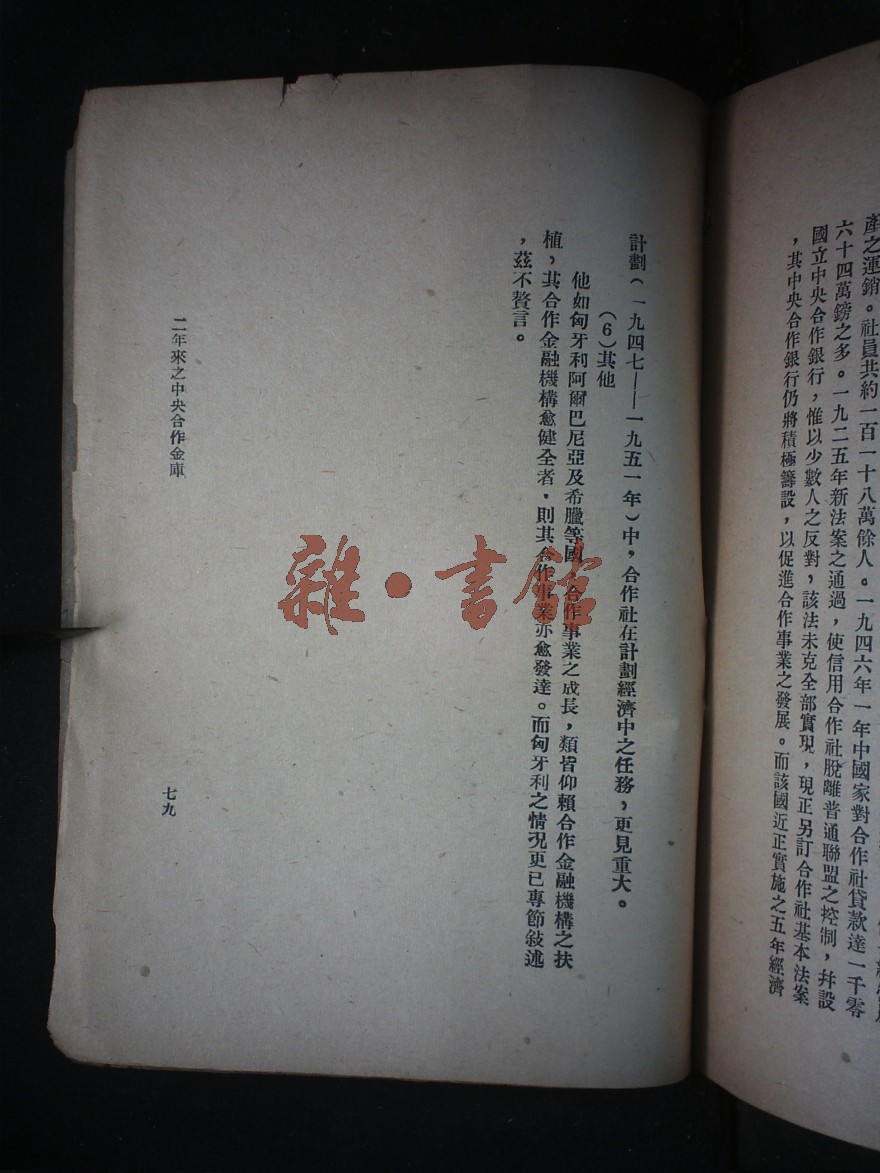 產之運銷。社員共約一百一十八萬餘人。一九四六年一年中國家對合作社貸款達一千零
六十四萬鎊之多。一九二五年新法案之通過，使信用合作社脫離普通聯盟之控制，幷設
國立中央合作銀行，惟以少數人之反對，該法未克全部實現，現正另訂合作社基本法案
，其中央合作銀行仍將積極籌設，以促進合作事業之發展。而該國近正實施之五年經濟
計劃（一九四七——一九五一年）中，合作社在計劃經濟中之任務，更見重大。
（6）其他
他如匈牙利阿爾巴尼亞及希臘等國 合作事業之成長，類皆仰賴合作金融機構之扶
植，其合作金融機構愈健全者，則其合作事業亦愈發達。而匈牙利之情况更已專節敍述
，茲不贅言。
二年來之中央合作金庫
七九
雜·書館